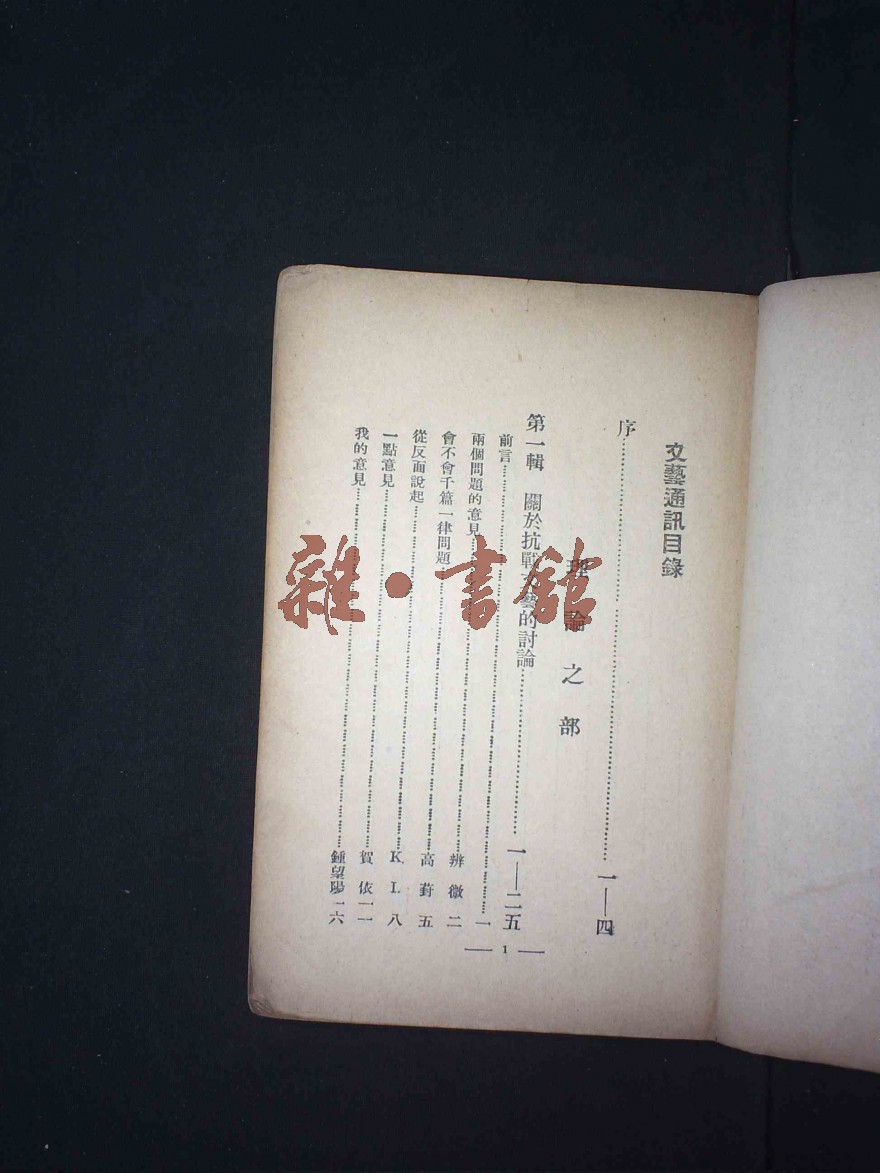 文藝通訊目錄
序……一——四
理論之部
第一輯　關於抗戰文藝的討論……一——二五
前言……一
兩個問題的意見……辨微　二
會不會千篇一律問題……高葑　五
從反面說起……K. I.　八
一點意見……賀依　一一
我的意見……鍾望陽　一六
— 1 —
雜·書館